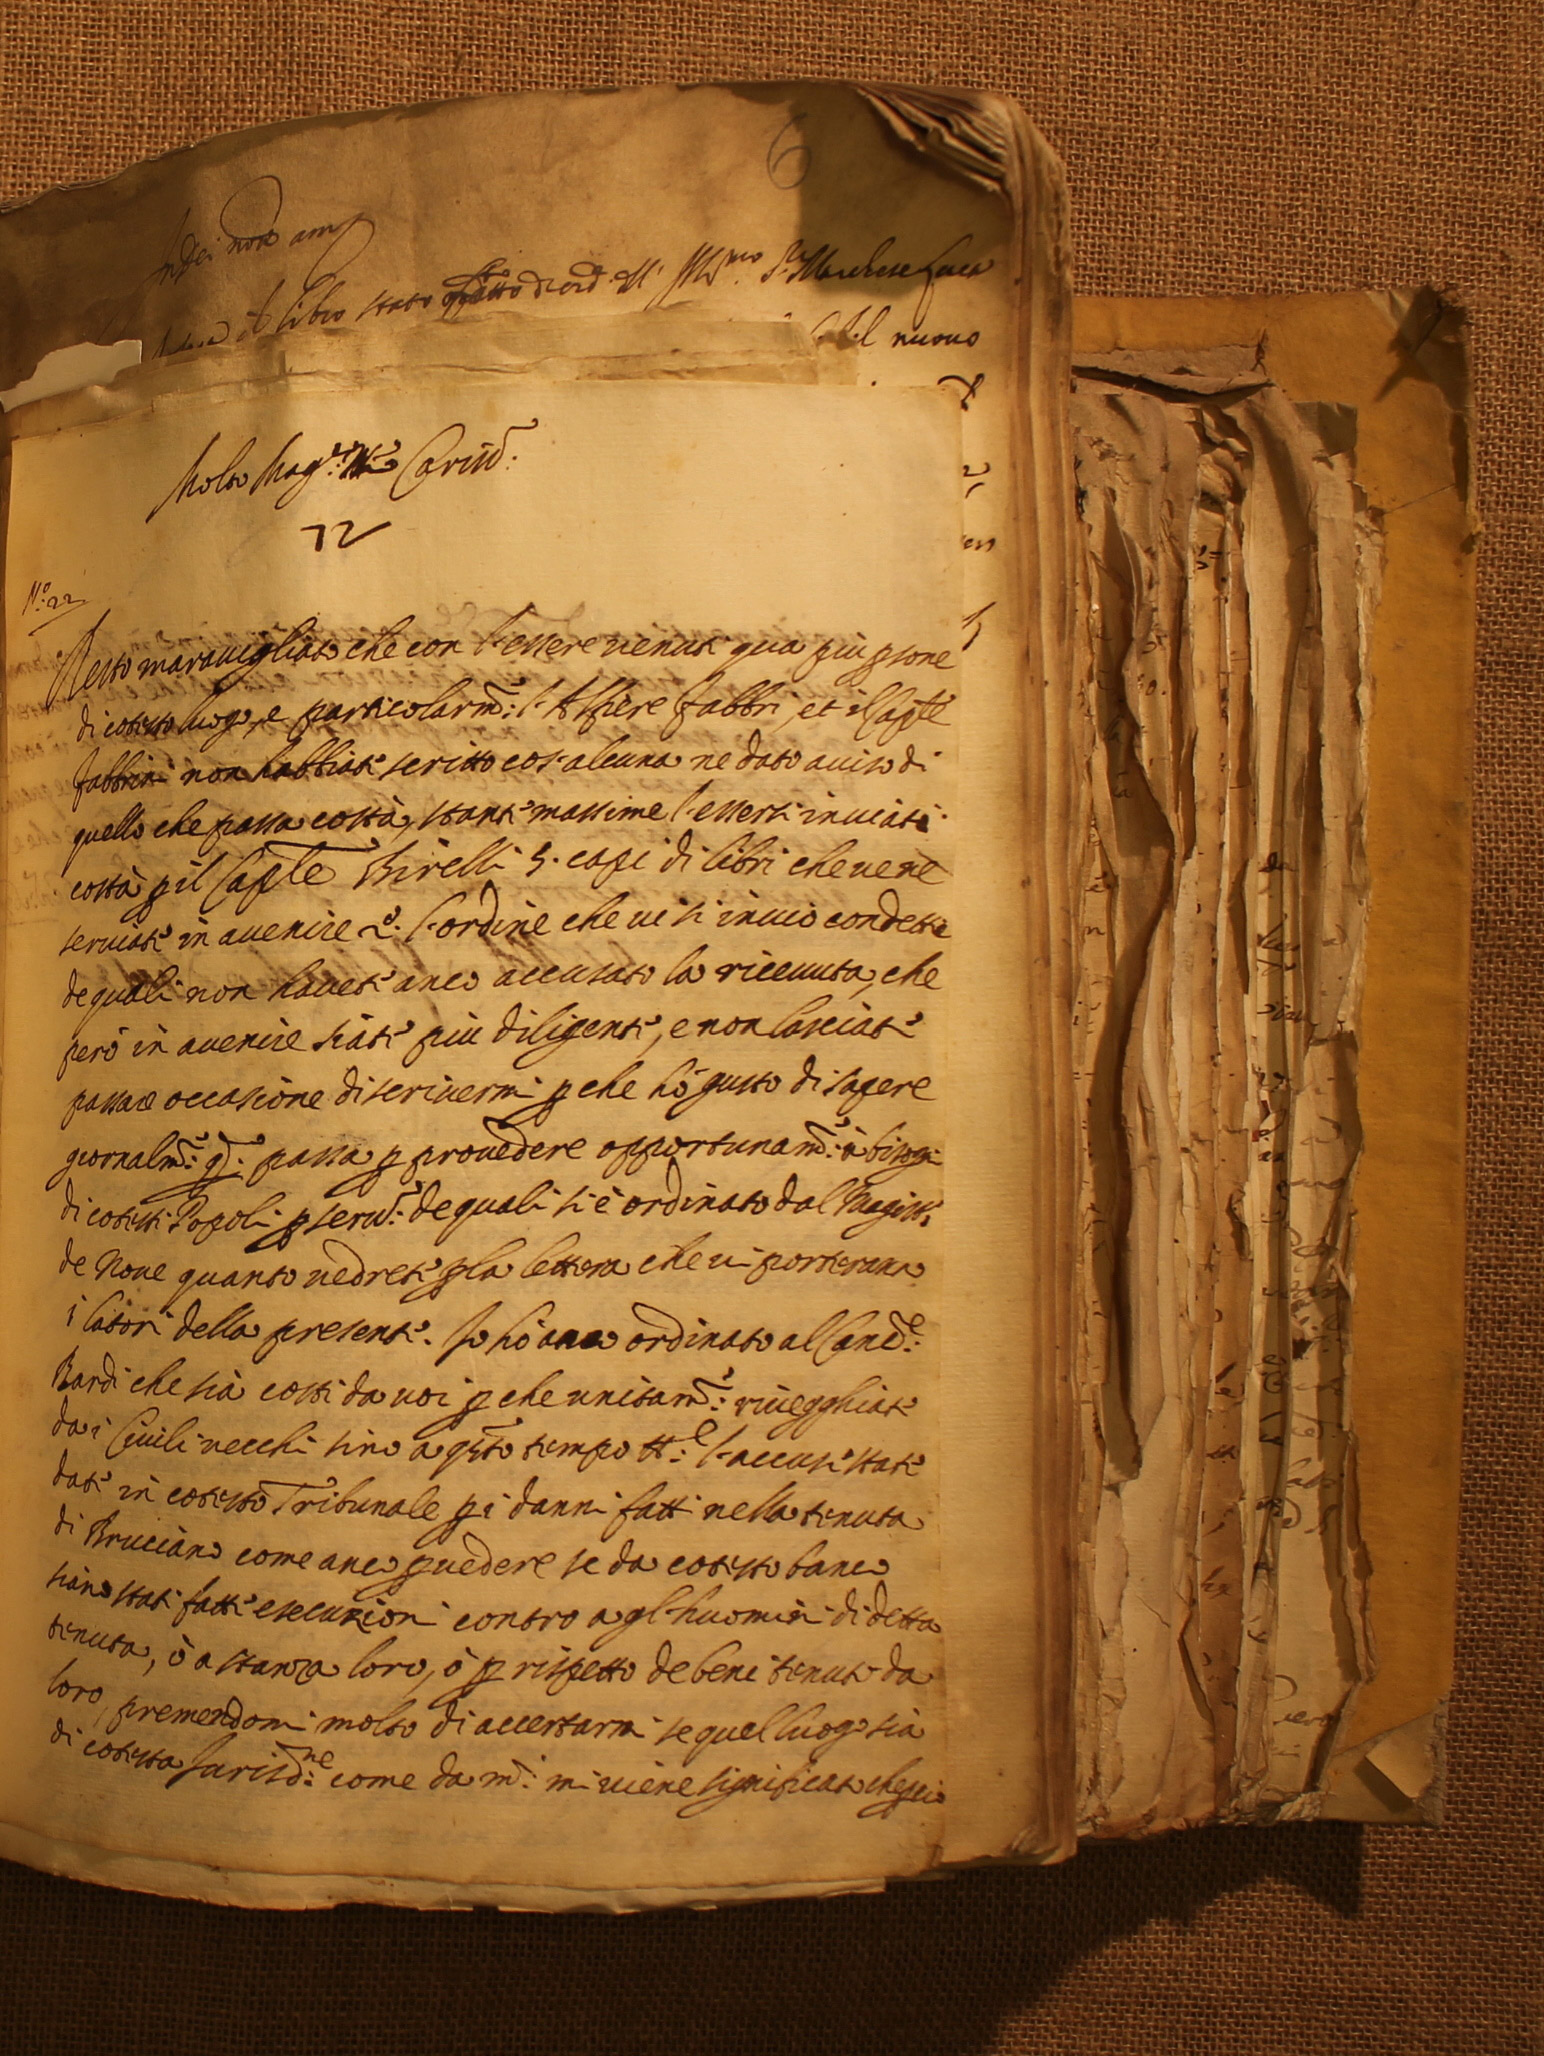 6
In Dei noe am
il libro stato fatto d'ord.e dell' Ill.mo S.r Marchese Luca
del nuovo
Molto Mag.co Caris.o
72
N.o 22
Resto marauigliato che con l'essere uenuti qua piu psone
di cotesto luogo, e particolarm.te l'Alfiere Fabbri, et il Caple
Fabbrini non habbiate scritto cos'alcuna ne dato auiso di
quello che passa costà, stante massime l'essersi inuiati
costà p il Caple Birelli 5. capi di libri che ue ne
seruiate in auenire e l'ordine che ui si inuio con detti
de quali non hauete anco accusato la riceuuta, che
però in auenire siate piu diligente, e non lasciate
passare occasione di scriuermi p che hò gusto di sapere
giornalm.te q.to passa p prouedere opportunam.te a bisogni
di cotesti Popoli p seru.o de quali si è ordinato dal Magist.o
de Noue quanto uedrete p la lettera che ui porteranno
i latori della presente. Io hò anco ordinato al Canc.re
Bardi che sia costì da uoi p che unitam.te riuegghiate
da i Ciuili uecchi sino a q.sto tempo tt.e l'accuse state
date in cotesto Tribunale p i danni fatti nella tenuta
di Bruciano come anco p uedere se da cotesto banco
siano state fatte esecuzioni contro a gl'huomini di detta
tenuta, ò a stanza loro, ò p rispetto de beni tenuti da
loro, premendomi molto di accertarmi se quel luogo sia
di cotesta Jurisd.ne come da m.ti mi uiene significato che